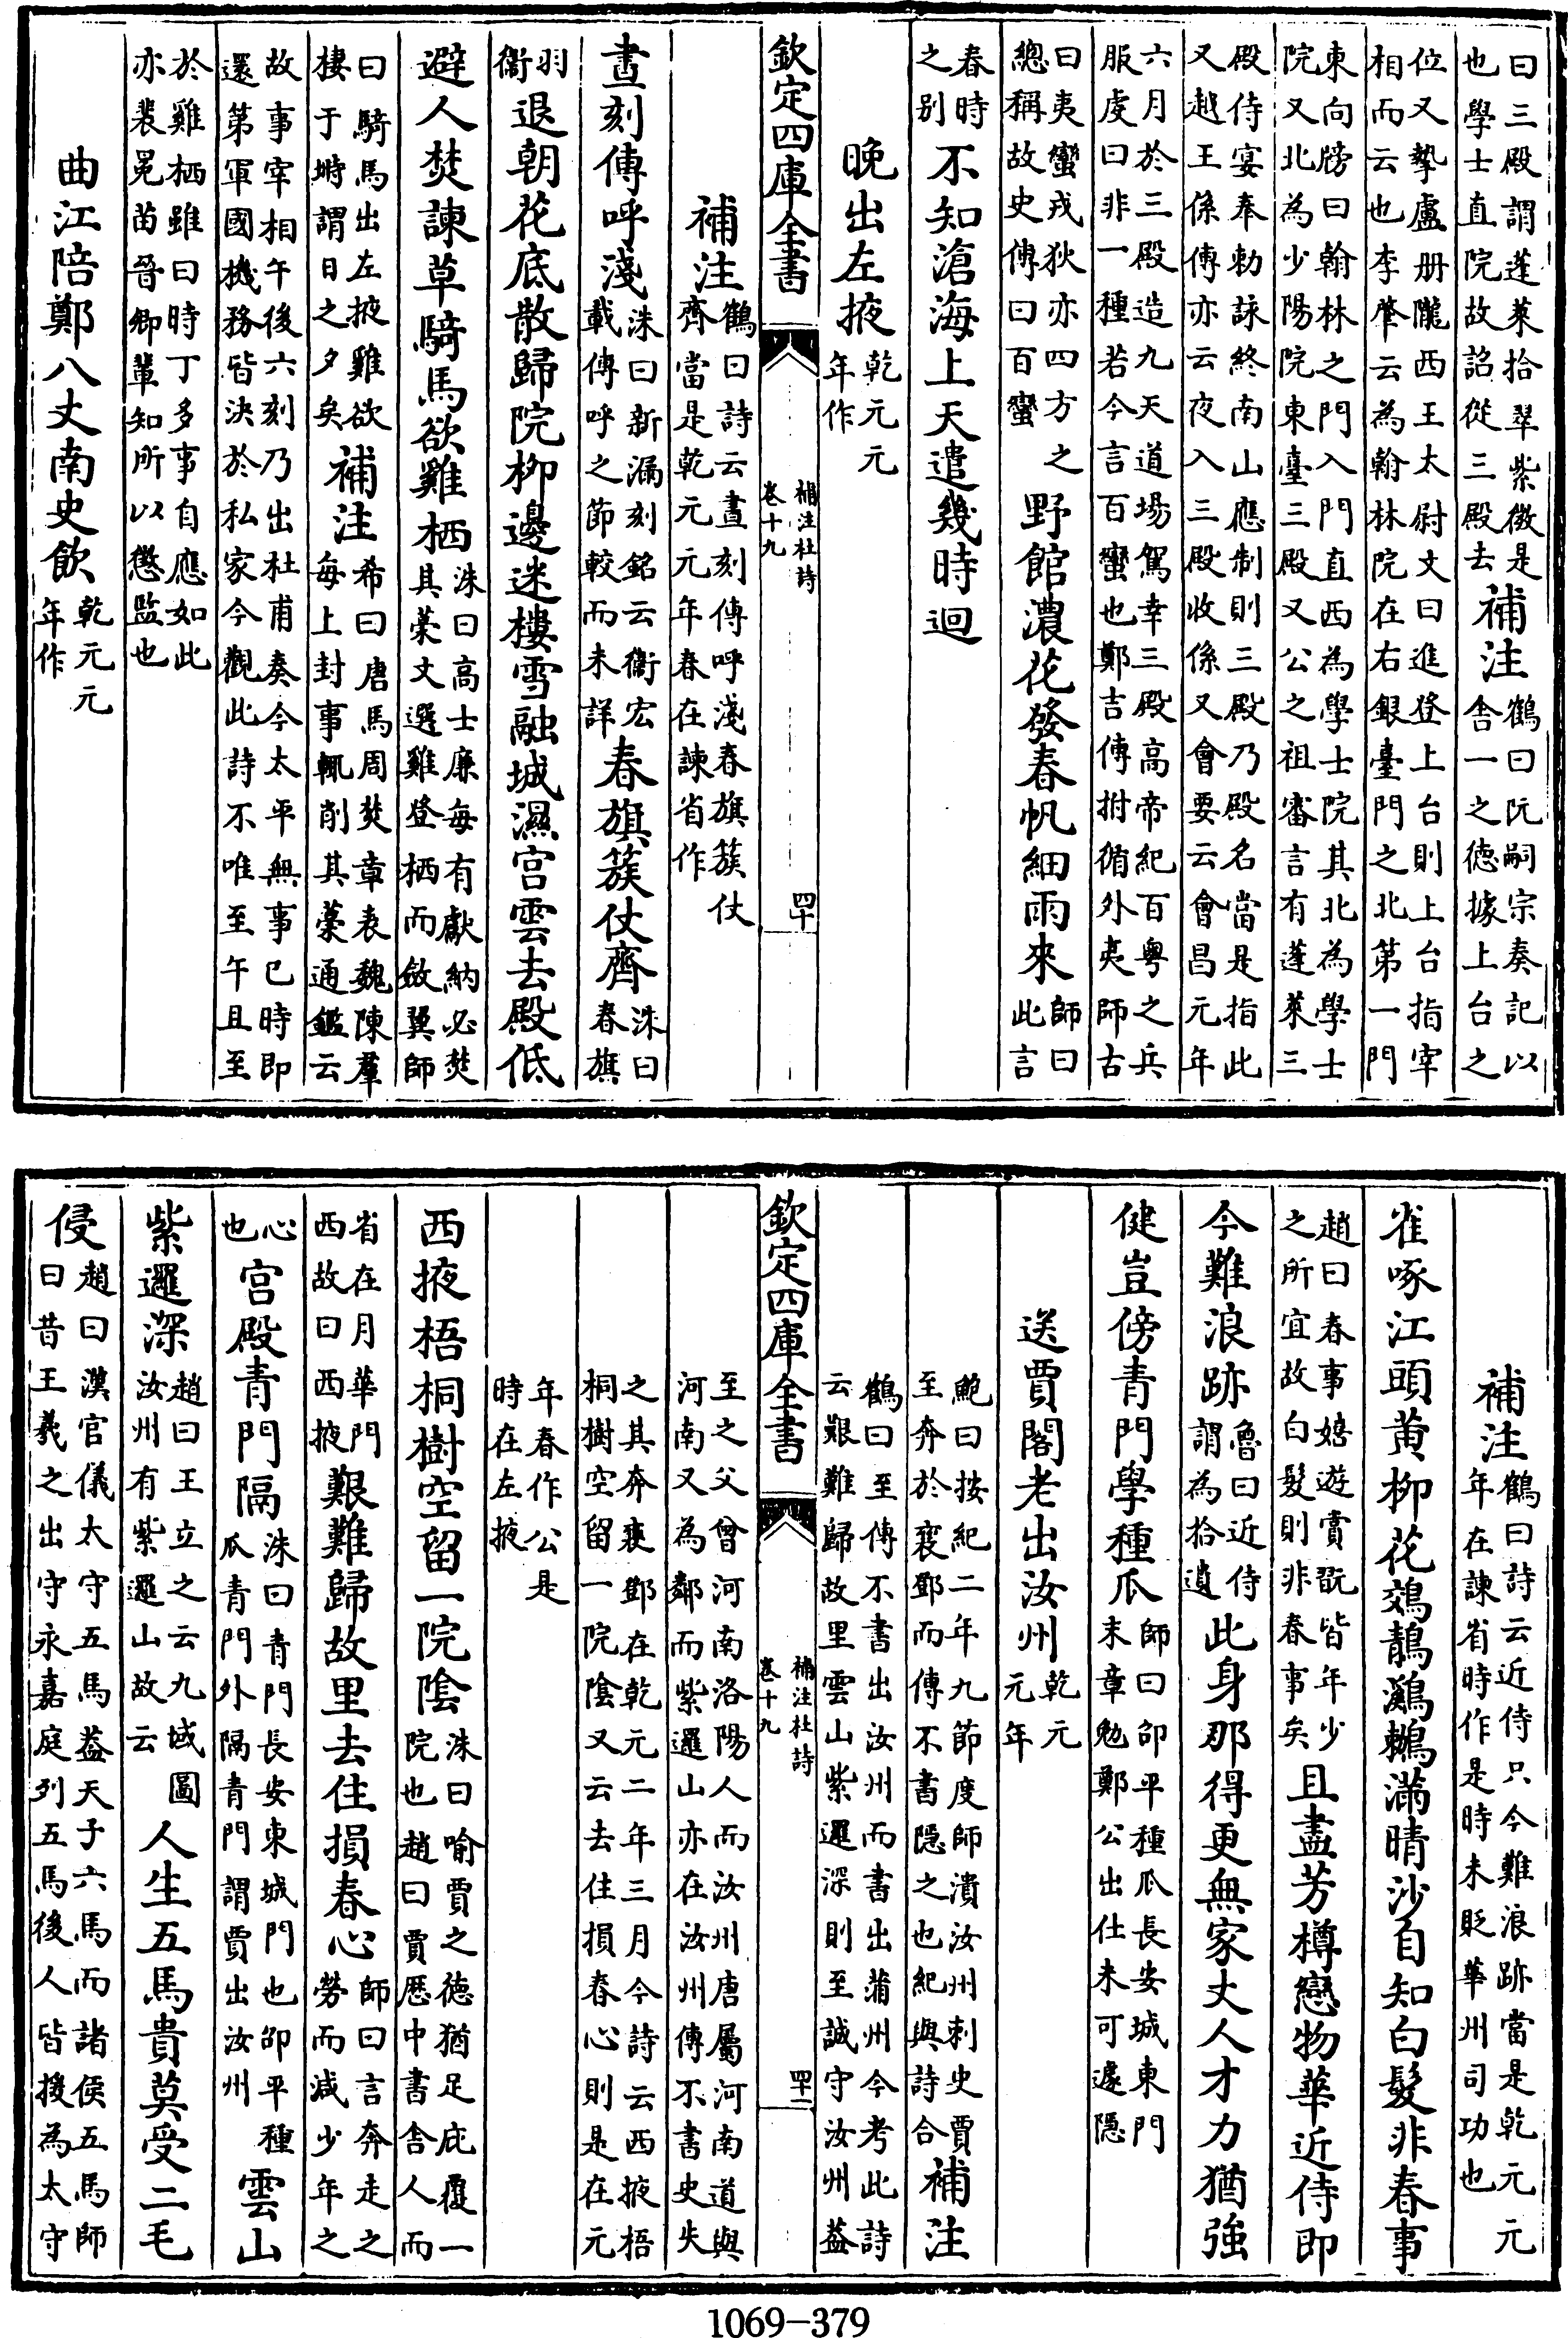 曰三殿謂蓬萊拾翠紫微是
也學士直院故詔從三殿去
補注
鶴曰阮嗣宗奏記以
舎一之德據上台之
位又摯盧册隴西王太尉文曰進登上台則上台指宰
相而云也李肇云為翰林院在右銀臺門之北第一門
東向牓曰翰林之門入門直西為學士院其北為學士
院又北為少陽院東臺三殿又公之祖審言有蓬萊三
殿侍宴奉勅詠終南山應制則三殿乃殿名當是指此
又越王係傳亦云夜入三殿收係又會要云會昌元年
六月於三殿造九天道場駕幸三殿高帝紀百粵之兵
服虔曰非一種若今言百蠻也鄭吉傳拊循外夷師古
曰夷蠻戎狄亦四方之
總稱故史傳曰百蠻
野館濃花發春帆細雨來
師曰
此言
春時
之别
不知滄海上天遣幾時迴
晚出左掖
乾元元
年作
欽定四庫全書
補注杜詩
卷十九
四十
補注
鶴曰詩云晝刻傳呼淺春旗簇仗
齊當是乾元元年春在諫省作
晝刻傳呼淺
洙曰新漏刻銘云衞宏
載傳呼之節較而未詳
春旗簇仗齊
洙曰
春旗
羽
衞
退朝花底散歸院柳邊迷樓雪融城濕宫雲去殿低
避人焚諫草騎馬欲雞栖
洙曰高士廉每有獻納必焚
其藁文選雞登栖而斂翼師
曰騎馬出左掖雞欲
棲于塒謂日之夕矣
補注
希曰唐馬周焚章表魏陳羣
每上封事輒削其藁通鑑云
故事宰相午後六刻乃出杜甫奏今太平無事巳時即
還第軍國機務皆決於私家今觀此詩不唯至午且至
於雞栖雖曰時丁多事自應如此
亦裴冕苗晉卿輩知所以懲監也
曲江陪鄭八丈南史飲
乾元元
年作
補注
鶴曰詩云近侍只今難浪跡當是乾元元
年在諫省時作是時未貶華州司功也
雀啄江頭黄柳花鵁鶄鸂鶒滿晴沙自知白髮非春事
趙曰春事嬉遊賞翫皆年少
之所宜故白髮則非春事矣
且盡芳樽戀物華近侍即
今難浪跡
魯曰近侍
謂為拾遺
此身那得更無家丈人才力猶強
健豈傍青門學種瓜
師曰卲平種瓜長安城東門
末章勉鄭公出仕未可遽隠
送賈閣老出汝州
乾元
元年
鮑曰按紀二年九節度師潰汝州刺史賈
至奔於襄鄧而傳不書隠之也紀與詩合
補注
鶴曰至傳不書出汝州而書出蒲州今考此詩
云艱難歸故里雲山紫邏深則至誠守汝州葢
欽定四庫全書
補注杜詩
卷十九
四十一
至之父曾河南洛陽人而汝州唐屬河南道與
河南又為鄰而紫邏山亦在汝州傳不書史失
之其奔襄鄧在乾元二年三月今詩云西掖梧
桐樹空留一院陰又云去住損春心則是在元
年春作公是
時在左掖
西掖梧桐樹空留一院陰
洙曰喻賈之德猶足庇覆一
院也趙曰賈歴中書舎人而
省在月華門
西故曰西掖
艱難歸故里去住損春心
師曰言奔走之
勞而減少年之
心
也
宫殿青門隔
洙曰青門長安東城門也卲平種
瓜青門外隔青門謂賈出汝州
雲山
紫邏深
趙曰王立之云九域圖
汝州有紫邏山故云
人生五馬貴莫受二毛
侵
趙曰漢官儀太守五馬葢天子六馬而諸侯五馬師
曰昔王羲之出守永嘉庭列五馬後人皆援為太守
1069-379